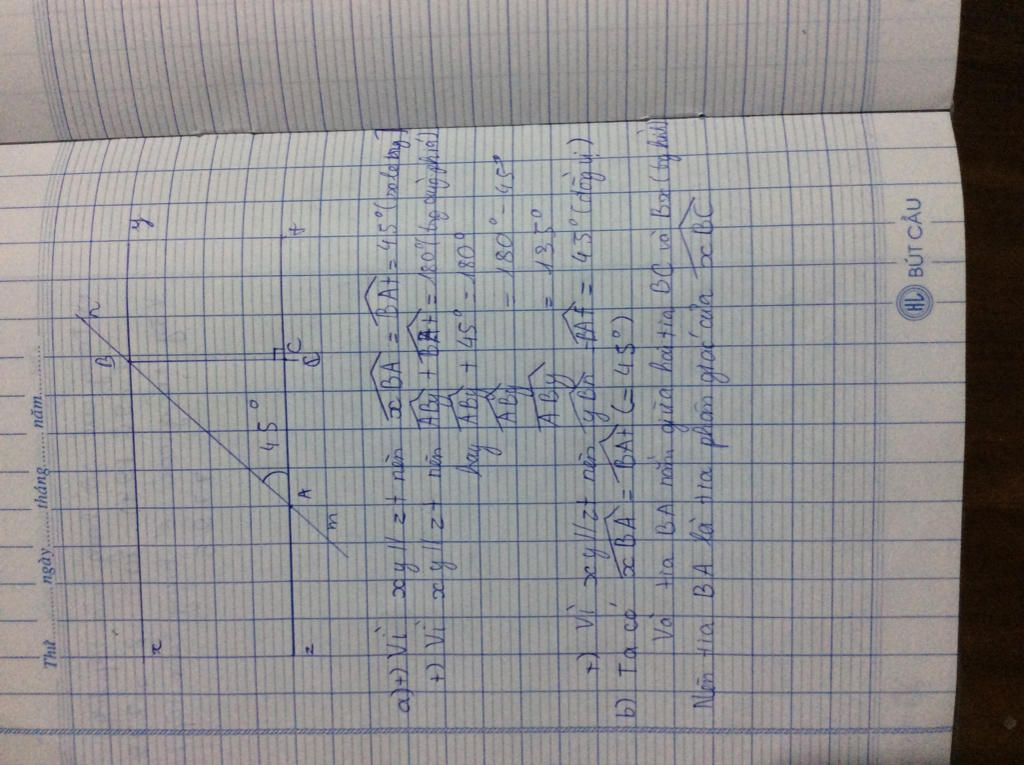 Thứ ngày tháng năm
B n
x y
45°
A C
z t
m C
a) +) Vì xy // zt nên xBA = BAt = 45° (so le trong)
+) Vì xy // zt nên ABy + BAt = 180° (trong cùng phía)
hay ABy + 45° = 180°
ABy = 180° - 45°
ABy = 135°
+) Vì xy // zt nên yBn = BAt = 45° (đồng vị)
b) Ta có xBA = BAt (= 45°)
Và tia BA nằm giữa hai tia BC và Bx
Nên tia BA là tia phân giác của xBC
HL BÚT CÂU